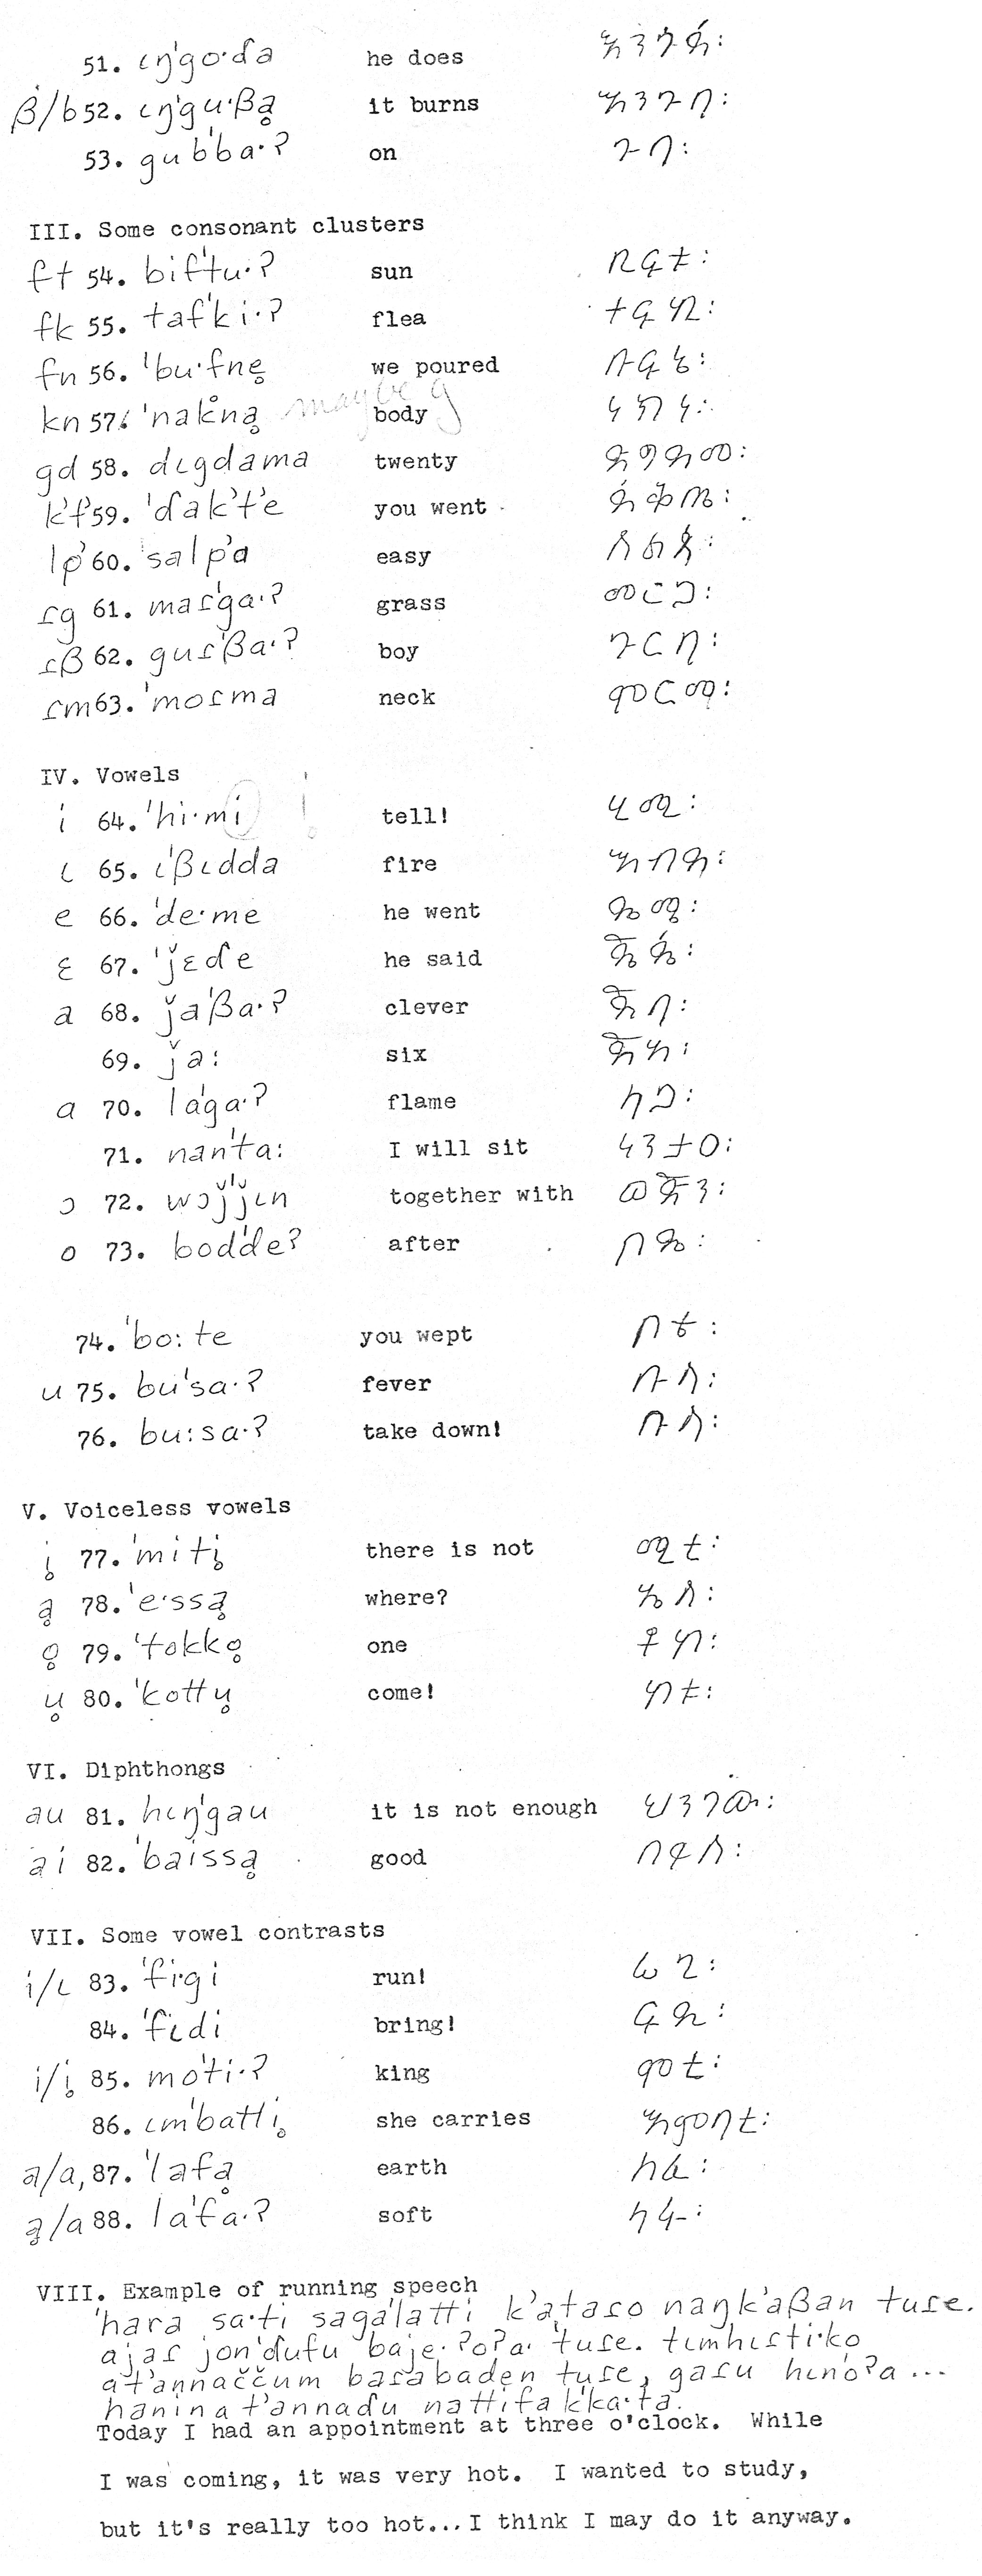 51. ɩŋ'go·ɗa he does እንጎዻ፡
β/b 52. ɩŋ'gu·βḁ it burns እንጉባ፡
53. gub'ba·ʔ on ጉባ፡
III. Some consonant clusters
ft 54. bif'tu·ʔ sun ቢፍቱ፡
fk 55. taf'ki·ʔ flea ተፍኪ፡
fn 56. 'bu·fne̥ we poured ቡፍኔ፡
kn 57. 'nak̊nḁ maybe g body ነክነ፡
gd 58. dɩgdama twenty ድግደመ፡
k't' 59. 'ɗak't'e you went ዸቅጤ፡
lp' 60. 'salp'a easy ሰልጰ፡
ɾg 61. maɾ'ga·ʔ grass መርጋ፡
ɾβ 62. guɾ'βa·ʔ boy ጉርባ፡
ɾm 63. 'moɾma neck ሞርማ፡
IV. Vowels
i 64. 'hi·mi tell! ሂሚ፡
ɩ 65. ɩ'βɩdda fire እብዳ፡
e 66. 'de·me he went ዴሜ፡
ɛ 67. 'ǰɛɗe he said ጄዼ፡
a 68. ǰa'βa·ʔ clever ጀባ፡
69. ǰa: six ጀአ፡
a 70. la'ga·ʔ flame ላጋ፡
71. nan'ta: I will sit ነንታዐ፡
ɔ 72. wɔǰ'ǰɩn together with ወጅን፡
o 73. bod'de·ʔ after ቦዴ፡
74. 'bo:te you wept ቦቴ፡
u 75. bu'sa·ʔ fever ቡሳ፡
76. bu:sa·ʔ take down! ቡሳ፡
V. Voiceless vowels
i̥ 77. 'miti̥ there is not ሚቲ፡
ḁ 78. 'e·ssḁ where? ኤሰ፡
o̥ 79. 'tokko̥ one ቶኮ፡
u̥ 80. 'kottu̥ come! ኮቱ፡
VI. Diphthongs
au 81. hɩŋ'gau it is not enough ህንገው፡
ai 82. 'baissḁ good በየሰ፡
VII. Some vowel contrasts
i/ɩ 83. 'figi run! ፊጊ፡
84. 'fɩdi bring! ፍዲ፡
i/i̥ 85. mo'ti·ʔ king ሞቲ፡
86. ɩm'batti̥ she carries እምባቲ፡
a/a, 87. 'lafḁ earth ለፈ፡
ḁ/a 88. la'fa·ʔ soft ላፋ፡
VIII. Example of running speech
'hara sa·ti saga'latti k'ataɾo naŋk'aβan tuɾe.
ajaɾ jon'ɗufu baje·ʔoʔa· 'tuɾe. tɩmhɩɾti·ko
at'annaččum baɾabaden tuɾe, gaɾu hɩno'ʔa ...
hanina t'annaɗu nattifak'ka·ta.
Today I had an appointment at three o'clock. While
I was coming, it was very hot. I wanted to study,
but it's really too hot...I think I may do it anyway.